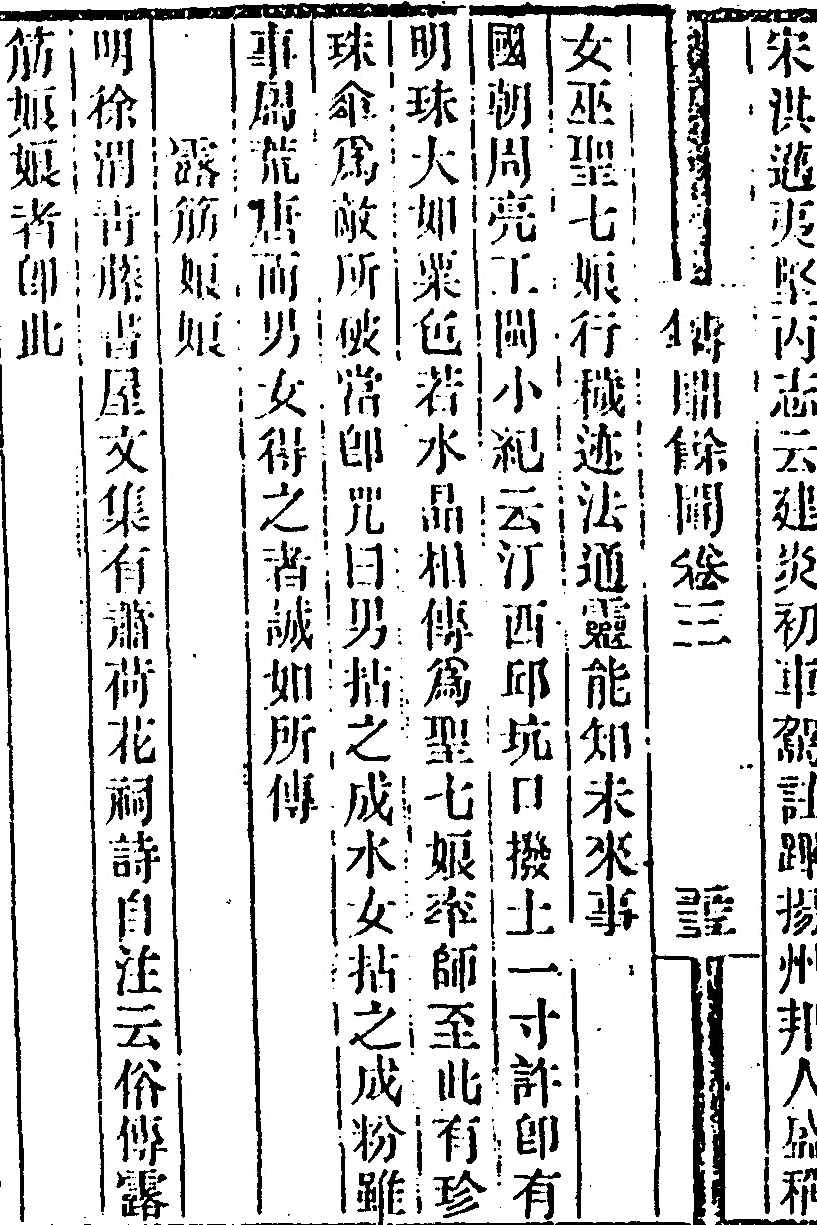 宋洪邁夷堅丙志云建炎初車駕駐蹕揚州邦人盛稱
鑄聞餘聞卷三
女巫聖七娘行穢迹法通靈能知未來事
國朝周亮工閩小紀云汀西邱坑口撥土一寸許卽有
明珠大如粟色若水晶相傳爲聖七娘率師至此有珍
珠傘爲敵所破當卽咒曰男拈之成水女拈之成粉雖
事屬荒唐而男女得之者誠如所傳
露筋娘娘
明徐渭靑藤書屋文集有蕭荷花祠詩自注云俗傳露
筋娘娘者卽此